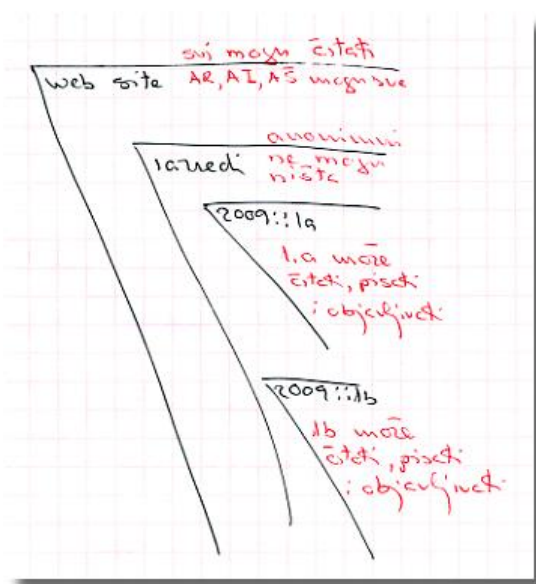 svi mogu čitati
web site AR, AI, AŠ mogu sve
anonimni
razredi ne mogu
ništa
2009::1a
1.a može
čitati, pisati
i objavljivati
2009::1b
1b može
čitati, pisati
i objavljivati